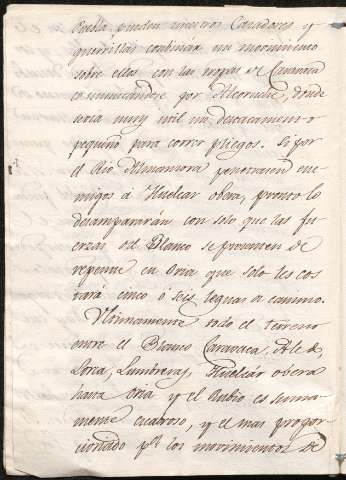 Puebla, pueden nuestros Cazadores y
guerrillas combinar un movimiento
sobre ellos con las tropas de Caravaca
comunicandose por Alcornia, donde
seria muy util un destacamento
pequeño para correr pliegos. Si por
el Rio Almanzora penetrasen ene-
migos á Huelcar obera, pronto lo
desampararán con solo que las fu-
erzas del Blanco se presenten de
repente en Oria que solo les cos
tará cinco ó seis leguas de camino.
Ultimamente todo el terreno
entre el Blanco Caravaca,
Lorca, Lumbreras, Huelcár obera
hasta Oria y el Rubio es suma-
mente escabroso, y el mas propor-
cionado pª los movimientos de